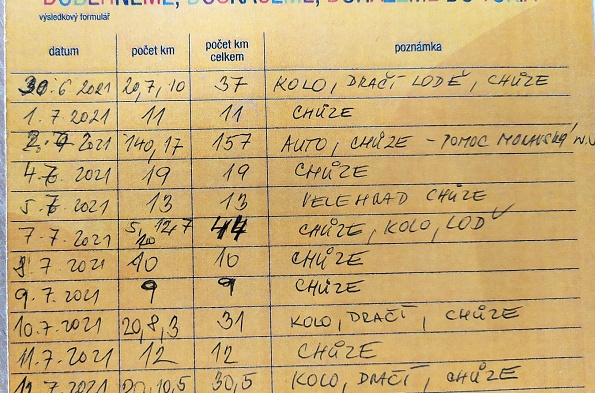 DOBĚHNEME, DOSKÁČEME, DORAZÍME DO TOKIA
výsledkový formulář
datum počet km počet km celkem poznámka
30.6.2021 20,7,10 37 KOLO, DRAČÍ LODĚ, CHŮZE
1.7.2021 11 11 CHŮZE
2.7.2021 140,17 157 AUTO, CHŮZE - POMOC
4.7.2021 19 19 CHŮZE
5.7.2021 13 13 VELEHRAD CHŮZE
7.7.2021 44 CHŮZE, KOLO, LOĎ
8.7.2021 10 10 CHŮZE
9.7.2021 9 9 CHŮZE
10.7.2021 20,8,3 31 KOLO, DRAČÍ, CHŮZE
11.7.2021 12 12 CHŮZE
12.7.2021 20,10,5 30,5 KOLO, DRAČÍ, CHŮZE